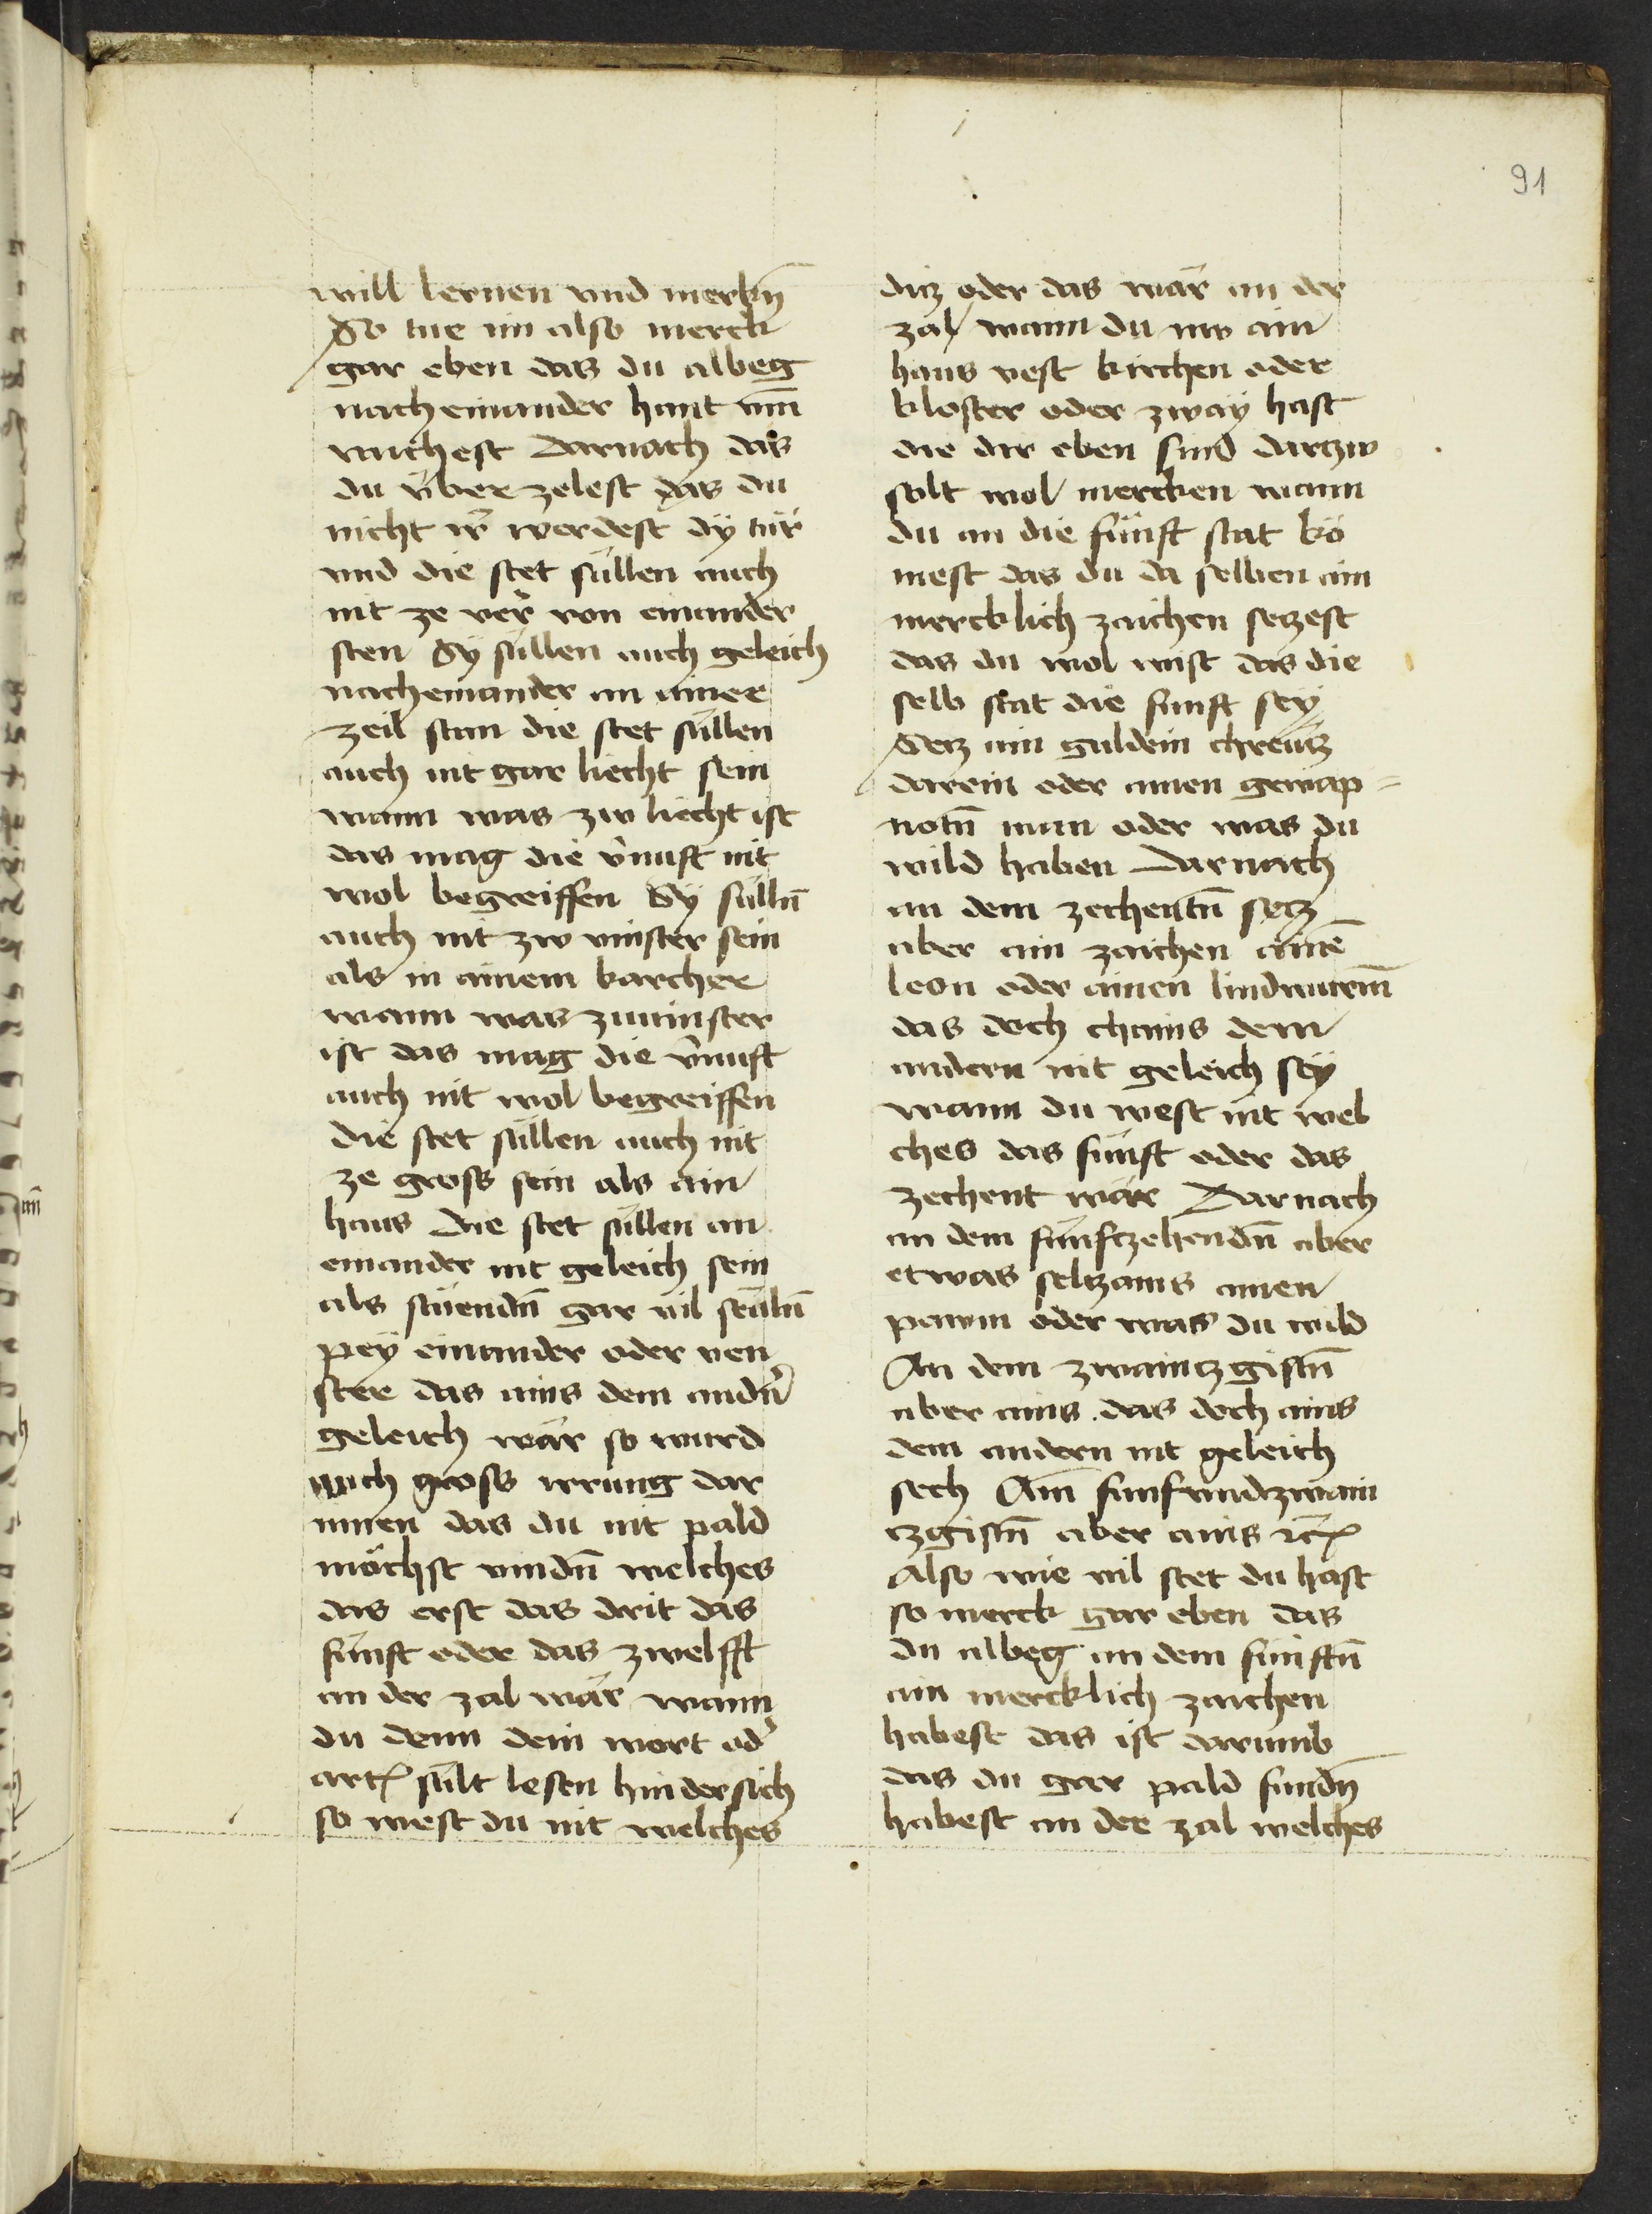 91
will lernen vnd merkn̄
So tue im also merck
gar eben das du albeg
nach einander hant vm̄
vnchest Darnach das
du v̈ber zelest das du
nicht ir̄ werdest dÿ tür
vnd die stet süllen auch
nit ze verr von einander
sten Sÿ süllen auch geleich
nach einander an ainer
zeil stan die stet süllen
auch nit gar liecht sein
wann was zw liecht ist
das mag die v̄nuft nit
wol begreiffen Sÿ sülln̄
auch nit zw vinster sein
als in ainem karcher
wann was zuuinster
ist das mag die v̄nuft
auch nit wol begreiffen
die stet süllen auch nit
ze gross sein als ain
haus Die stet süllen an
einander nit geleich sein
als stüendn̄ gar vil seüln̄
pey einander oder ven
ster das ains dem andn̄
geleich wär so wurd
auch gross irrung dar
innen das du nit pald
möchst vindn̄ welches
das erst das drit das
fünft oder das zwelfft
an der zal wär wann
du denn dein wort od̄
artz sült lesen hindersich
so west du nit welches
ditz oder das wär an der
zal wann du nw ain
haus vest kirchen oder
kloster oder zway hast
die dir eben sind darzw
solt wol mercken wann
du an die fünft stat kö
mest das du da selben ain
mercklich zaichen setzest
das du wol wist das die
selb stat die funft seÿ
Setz ain guldein chreütz
darein oder ainen gewap=
notn̄ man oder was du
wild haben Darnach
an dem zechentn̄ setz
aber ain zaichen ainē
leon oder ainen lindwurm̄
das doch chains dem
andern nit geleich seÿ
wann du west nit wel
ches das fünft oder das
zechent wär Darnach
an dem fünfzehendn̄ aber
etwas seltzams ainen
pawm oder was du wild
An dem zwaintzgistn̄
aber ains das doch ains
dem andern nit geleich
sech Am̄ funfvndzwain
tzgistn̄ aber ains ꝛc̄
Also wie vil stet du hast
so merck gar eben das
du albeg an dem fünftn̄
ain mercklich zaichen
habest das ist darumb
das du gar pald fundn̄
habest an der zal welches